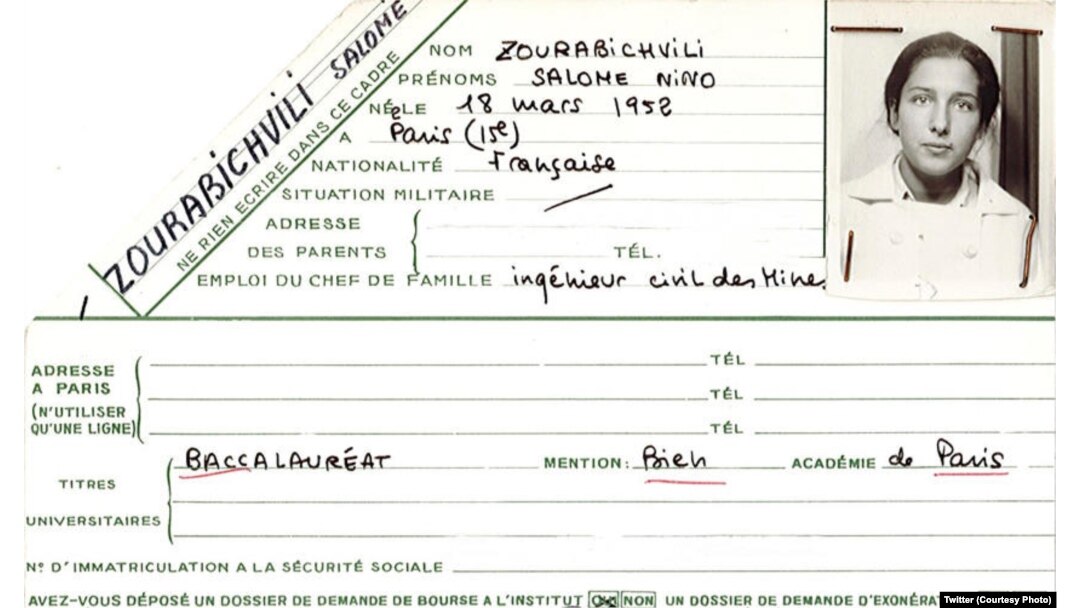 ZOURABICHVILI SALOME
NE RIEN ECRIRE DANS CE CADRE
NOM ZOURABICHVILI
PRÉNOMS SALOME NINO
NÉe LE 18 mars 1952
A Paris (15e)
NATIONALITÉ Française
SITUATION MILITAIRE
ADRESSE
DES PARENTS TÉL.
EMPLOI DU CHEF DE FAMILLE ingénieur civil des Mines
ADRESSE TÉL
A PARIS TÉL
(N'UTILISER
QU'UNE LIGNE) TÉL
BACCALAURÉAT MENTION: Bien ACADÉMIE de Paris
TITRES
UNIVERSITAIRES
No D'IMMATRICULATION A LA SÉCURITÉ SOCIALE
AVEZ-VOUS DÉPOSÉ UN DOSSIER DE DEMANDE DE BOURSE A L'INSTITUT OUI NON UN DOSSIER DE DEMANDE D'EXONÉRAT
Twitter (Courtesy Photo)